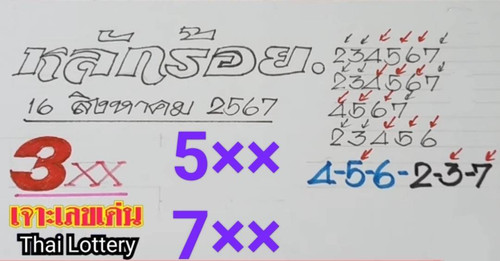 หลักร้อย.
16 สิงหาคม 2567
234567
234567
4567
23456
3xx
5××
4-5-6-2-3-7
เจาะเลขเด่น
7××
Thai Lottery